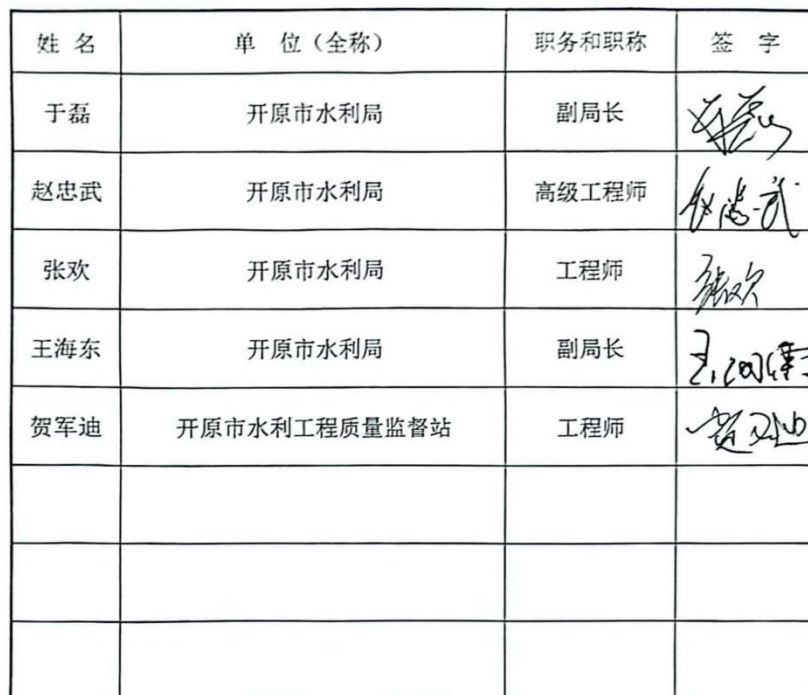 姓 名 单 位（全称） 职务和职称 签 字
于磊 开原市水利局 副局长
赵忠武 开原市水利局 高级工程师
张欢 开原市水利局 工程师 张欢
王海东 开原市水利局 副局长
贺军迪 开原市水利工程质量监督站 工程师